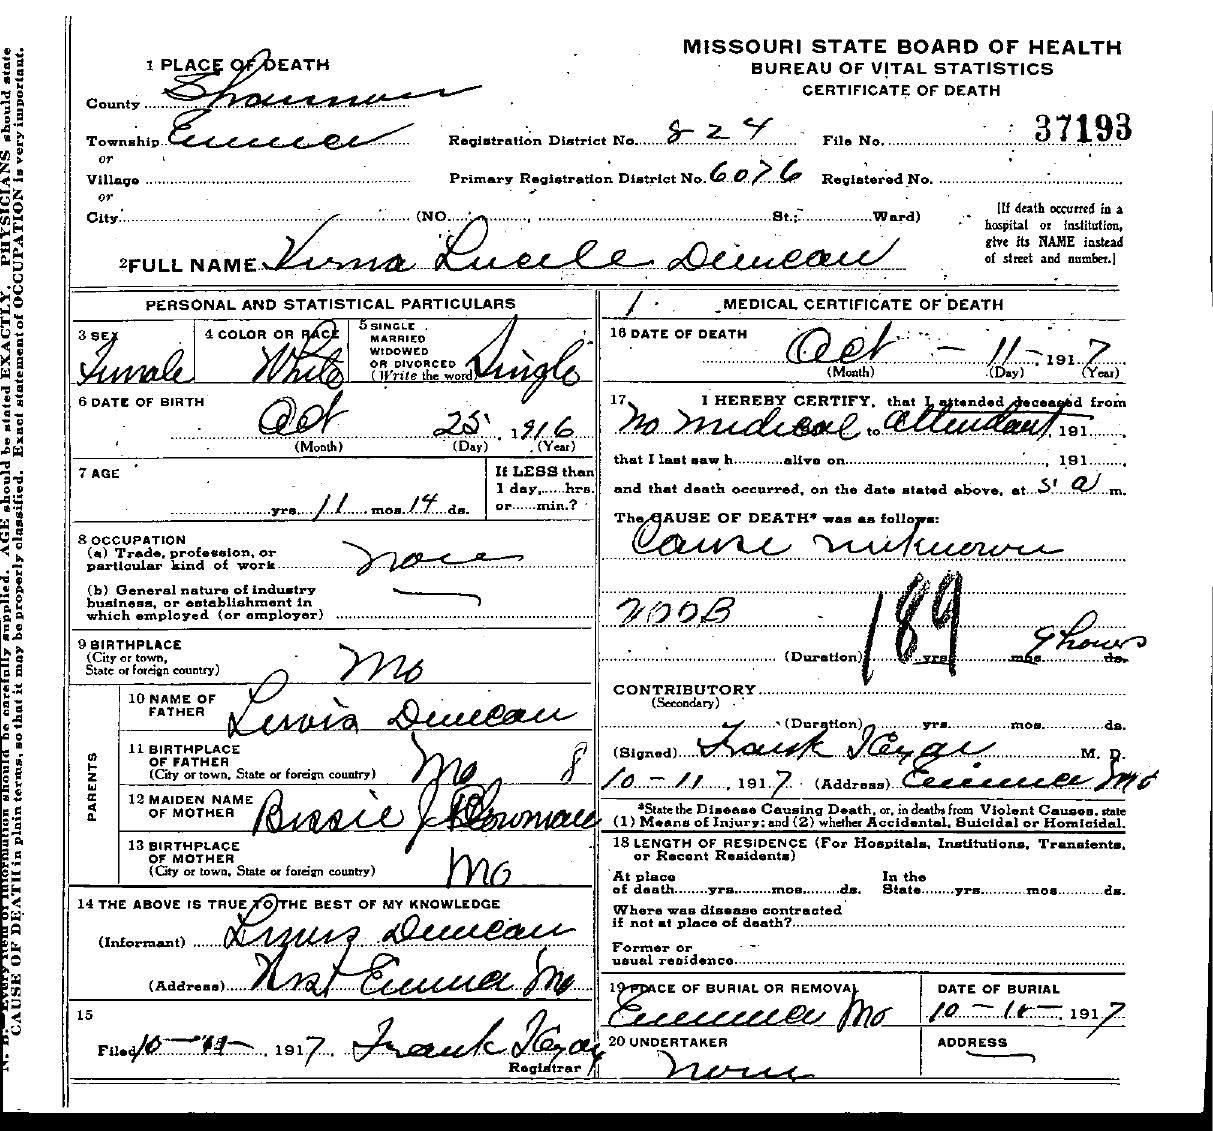 MISSOURI STATE BOARD OF HEALTH
BUREAU OF VITAL STATISTICS
CERTIFICATE OF DEATH
1 PLACE OF DEATH
County Shannon
Township
or
Village
or
City (NO. , St.; Ward)
Registration District No. 824
File No. 37193
Primary Registration District No. 6076
Registered No.
[If death occurred in a
hospital or institution,
give its NAME instead
of street and number.]
2 FULL NAME Lucile Duncan
PERSONAL AND STATISTICAL PARTICULARS
3 SEX
Female
4 COLOR OR RACE
White
5 SINGLE
MARRIED
WIDOWED
OR DIVORCED
(Write the word) Single
6 DATE OF BIRTH
Oct 25, 1916
(Month) (Day) (Year)
7 AGE
yrs. 11 mos. 14 ds.
If LESS than
1 day, hrs.
or min.?
8 OCCUPATION
(a) Trade, profession, or
particular kind of work None
(b) General nature of industry
business, or establishment in
which employed (or employer)
9 BIRTHPLACE
(City or town,
State or foreign country)
Mo
PARENTS
10 NAME OF
FATHER
Duncan
11 BIRTHPLACE
OF FATHER
(City or town, State or foreign country)
Mo 8
12 MAIDEN NAME
OF MOTHER
Bessie J
13 BIRTHPLACE
OF MOTHER
(City or town, State or foreign country)
Mo
14 THE ABOVE IS TRUE TO THE BEST OF MY KNOWLEDGE
(Informant) Duncan
(Address) Mo
15
Filed 10 , 1917, Frank
Registrar
MEDICAL CERTIFICATE OF DEATH
16 DATE OF DEATH
Oct - 11 - 1917
(Month) (Day) (Year)
17 I HEREBY CERTIFY, that I attended deceased from
No medical to attendant, 191
that I last saw h alive on , 191
and that death occurred, on the date stated above, at 5 a m.
The CAUSE OF DEATH* was as follows:
Cause unknown
200B
189
(Duration) yrs. mos. 9 hours ds.
CONTRIBUTORY
(Secondary)
(Duration) yrs. mos. ds.
(Signed) Frank M. D.
10-11, 1917 (Address) Mo
*State the Disease Causing Death, or, in deaths from Violent Causes, state
(1) Means of Injury; and (2) whether Accidental, Suicidal or Homicidal.
18 LENGTH OF RESIDENCE (For Hospitals, Institutions, Transients,
or Recent Residents)
At place
of death yrs. mos. ds.
In the
State yrs. mos. ds.
Where was disease contracted
if not at place of death?
Former or
usual residence
19 PLACE OF BURIAL OR REMOVAL
Mo
DATE OF BURIAL
10 , 1917
20 UNDERTAKER
None
ADDRESS
N. B.—Every item of information should be carefully supplied. AGE should be stated EXACTLY. PHYSICIANS should state
CAUSE OF DEATH in plain terms, so that it may be properly classified. Exact statement of OCCUPATION is very important.